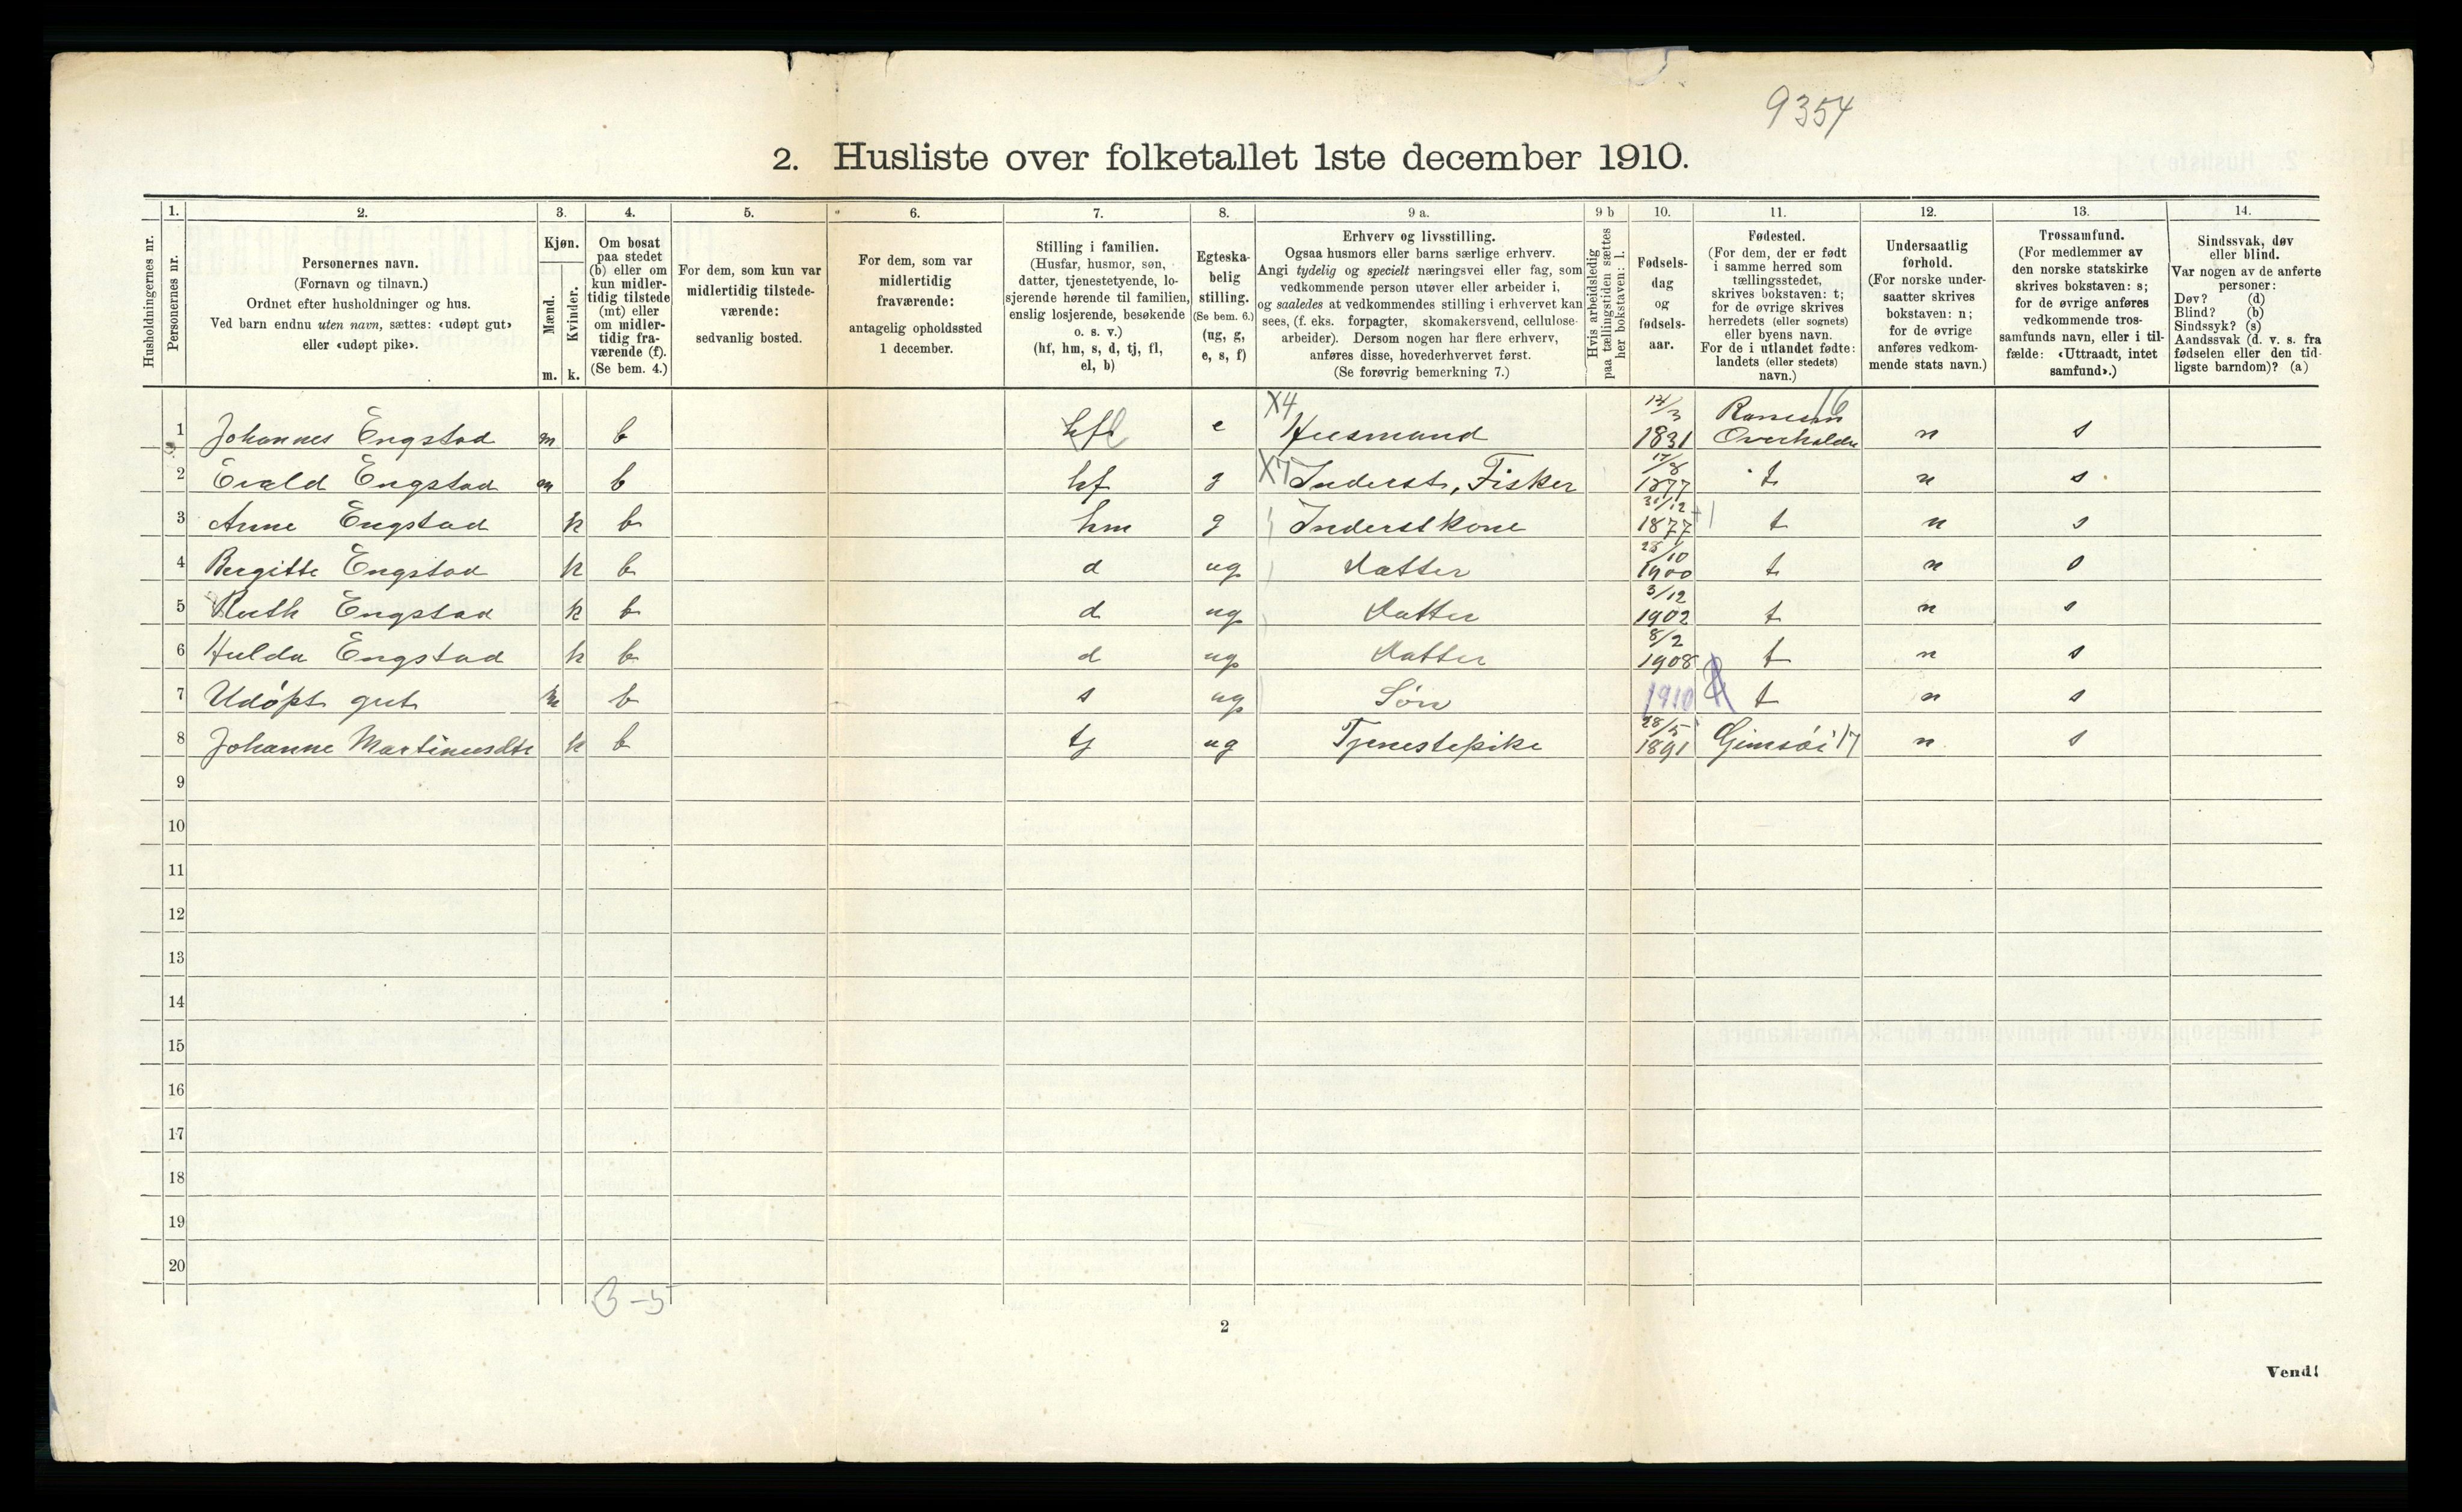 9354
2. Husliste over folketallet 1ste december 1910.
Husholdningernes nr.
1.
Personernes nr.
2.
Personernes navn.
(Fornavn og tilnavn.)
Ordnet efter husholdninger og hus.
Ved barn endnu uten navn, sættes: «udøpt gut»
eller «udøpt pike».
3.
Kjøn.
Mænd.
Kvinder.
m. k.
4.
Om bosat
paa stedet
(b) eller om
kun midler-
tidig tilstede
(mt) eller
om midler-
tidig fra-
værende (f).
(Se bem. 4.)
5.
For dem, som kun var
midlertidig tilstede-
værende:
sedvanlig bosted.
6.
For dem, som var
midlertidig
fraværende:
antagelig opholdssted
1 december.
7.
Stilling i familien.
(Husfar, husmor, søn,
datter, tjenestetyende, lo-
sjerende hørende til familien,
enslig losjerende, besøkende
o. s. v.)
(hf, hm, s, d, tj, fl,
el, b)
8.
Egteska-
belig
stilling.
(Se bem. 6.)
(ug, g,
e, s, f)
9 a.
Erhverv og livsstilling.
Ogsaa husmors eller barns særlige erhverv.
Angi tydelig og specielt næringsvei eller fag, som
vedkommende person utøver eller arbeider i,
og saaledes at vedkommendes stilling i erhvervet kan
sees, (f. eks. forpagter, skomakersvend, cellulose-
arbeider). Dersom nogen har flere erhverv,
anføres disse, hovederhvervet først.
(Se forøvrig bemerkning 7.)
9 b
Hvis arbeidsledig
paa tællingstiden sættes
her bokstaven: l.
10.
Fødsels-
dag
og
fødsels-
aar.
11.
Fødested.
(For dem, der er født
i samme herred som
tællingsstedet,
skrives bokstaven: t;
for de øvrige skrives
herredets (eller sognets)
eller byens navn.
For de i utlandet fødte:
landets (eller stedets)
navn.)
12.
Undersaatlig
forhold.
(For norske under-
saatter skrives
bokstaven: n;
for de øvrige
anføres vedkom-
mende stats navn.)
13.
Trossamfund.
(For medlemmer av
den norske statskirke
skrives bokstaven: s;
for de øvrige anføres
vedkommende tros-
samfunds navn, eller i til-
fælde: «Uttraadt, intet
samfund».)
14.
Sindssvak, døv
eller blind.
Var nogen av de anførte
personer:
Døv? (d)
Blind? (b)
Sindssyk? (s)
Aandssvak (d. v. s. fra
fødselen eller den tid-
ligste barndom)? (a)
1 Johannes Engstad m b e X4 Husmand 1831 16 Overhalden n s
2 Evald Engstad m b hf g X7 Inderst, Fisker 17/8 1877 t n s
3 Anne Engstad k b hm g Inderstkone 31/12 1877 t n s
4 Bergitte Engstad k b d ug Datter 28/10 1900 t n s
5 Ruth Engstad k b d ug Datter 3/12 1902 t n s
6 Hulda Engstad k b d ug Datter 8/2 1908 t n s
7 Udøpt gut m b s ug Søn 1910 t n s
8 Johanne Martinusdtr k b tj ug Tjenestepike 28/5 1891 Gimsøi 17 n s
9
10
11
12
13
14
15
16
17
18
19
20
3-5
2
Vend!